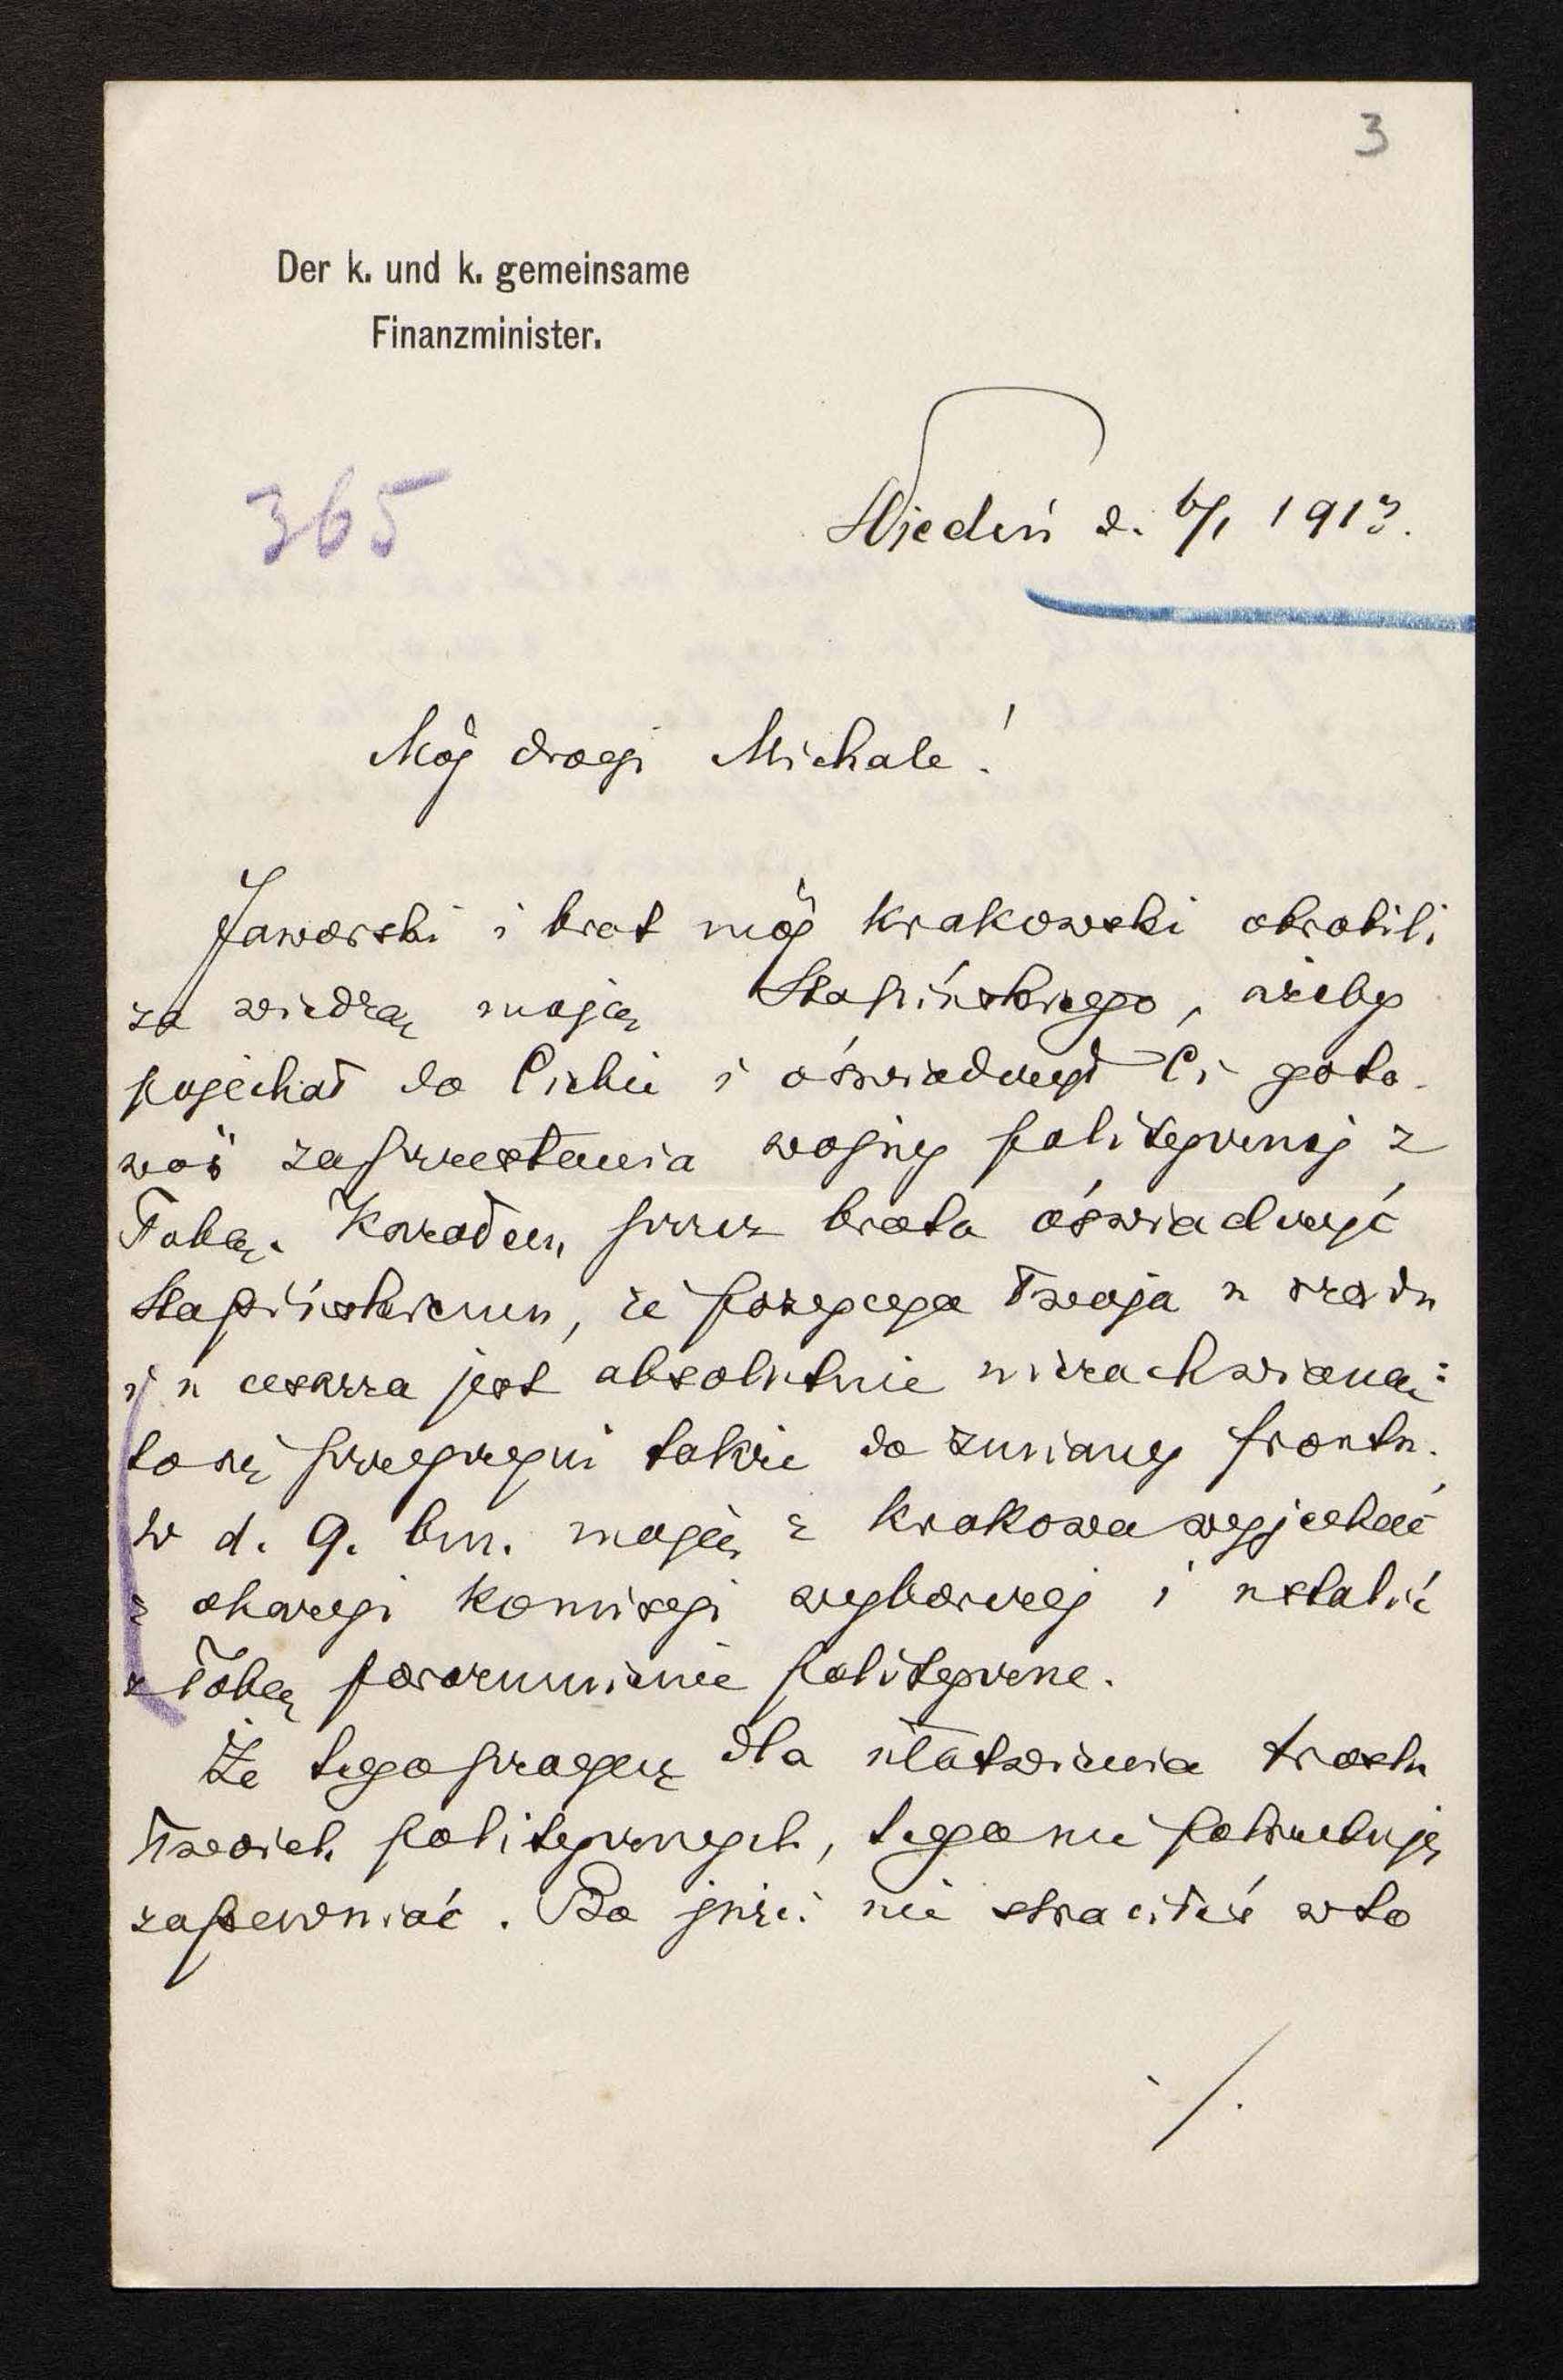 3
Der k. und k. gemeinsame
Finanzminister.
365
Wiedeń d. 6/1 1913.
Mój drogi Michale!
Jaworski i brat mój krakowski obrobili
za wiedzą moją Stapińskiego, ażeby
pojechał do Ciebie i oświadczył Ci goto-
wość zaprzestania wojny politycznej z
Tobą. Kazałem przez brata oświadczyć
Stapińskiemu, że pozycya Twoja u rządu
i u cesarza jest absolutnie niezachwianą:
to się przyczyni także do zmiany frontu.
W d. 9. bm. mają z Krakowa wyjechać
z okazyi komisyi wyborczej i ustalić
z Tobą porozumienie polityczne.
Że tego pragnę dla ułatwienia trosk
Twoich politycznych, tego nie potrzebuję
zapewniać. Bo jużci nie straciłeś w to
./.